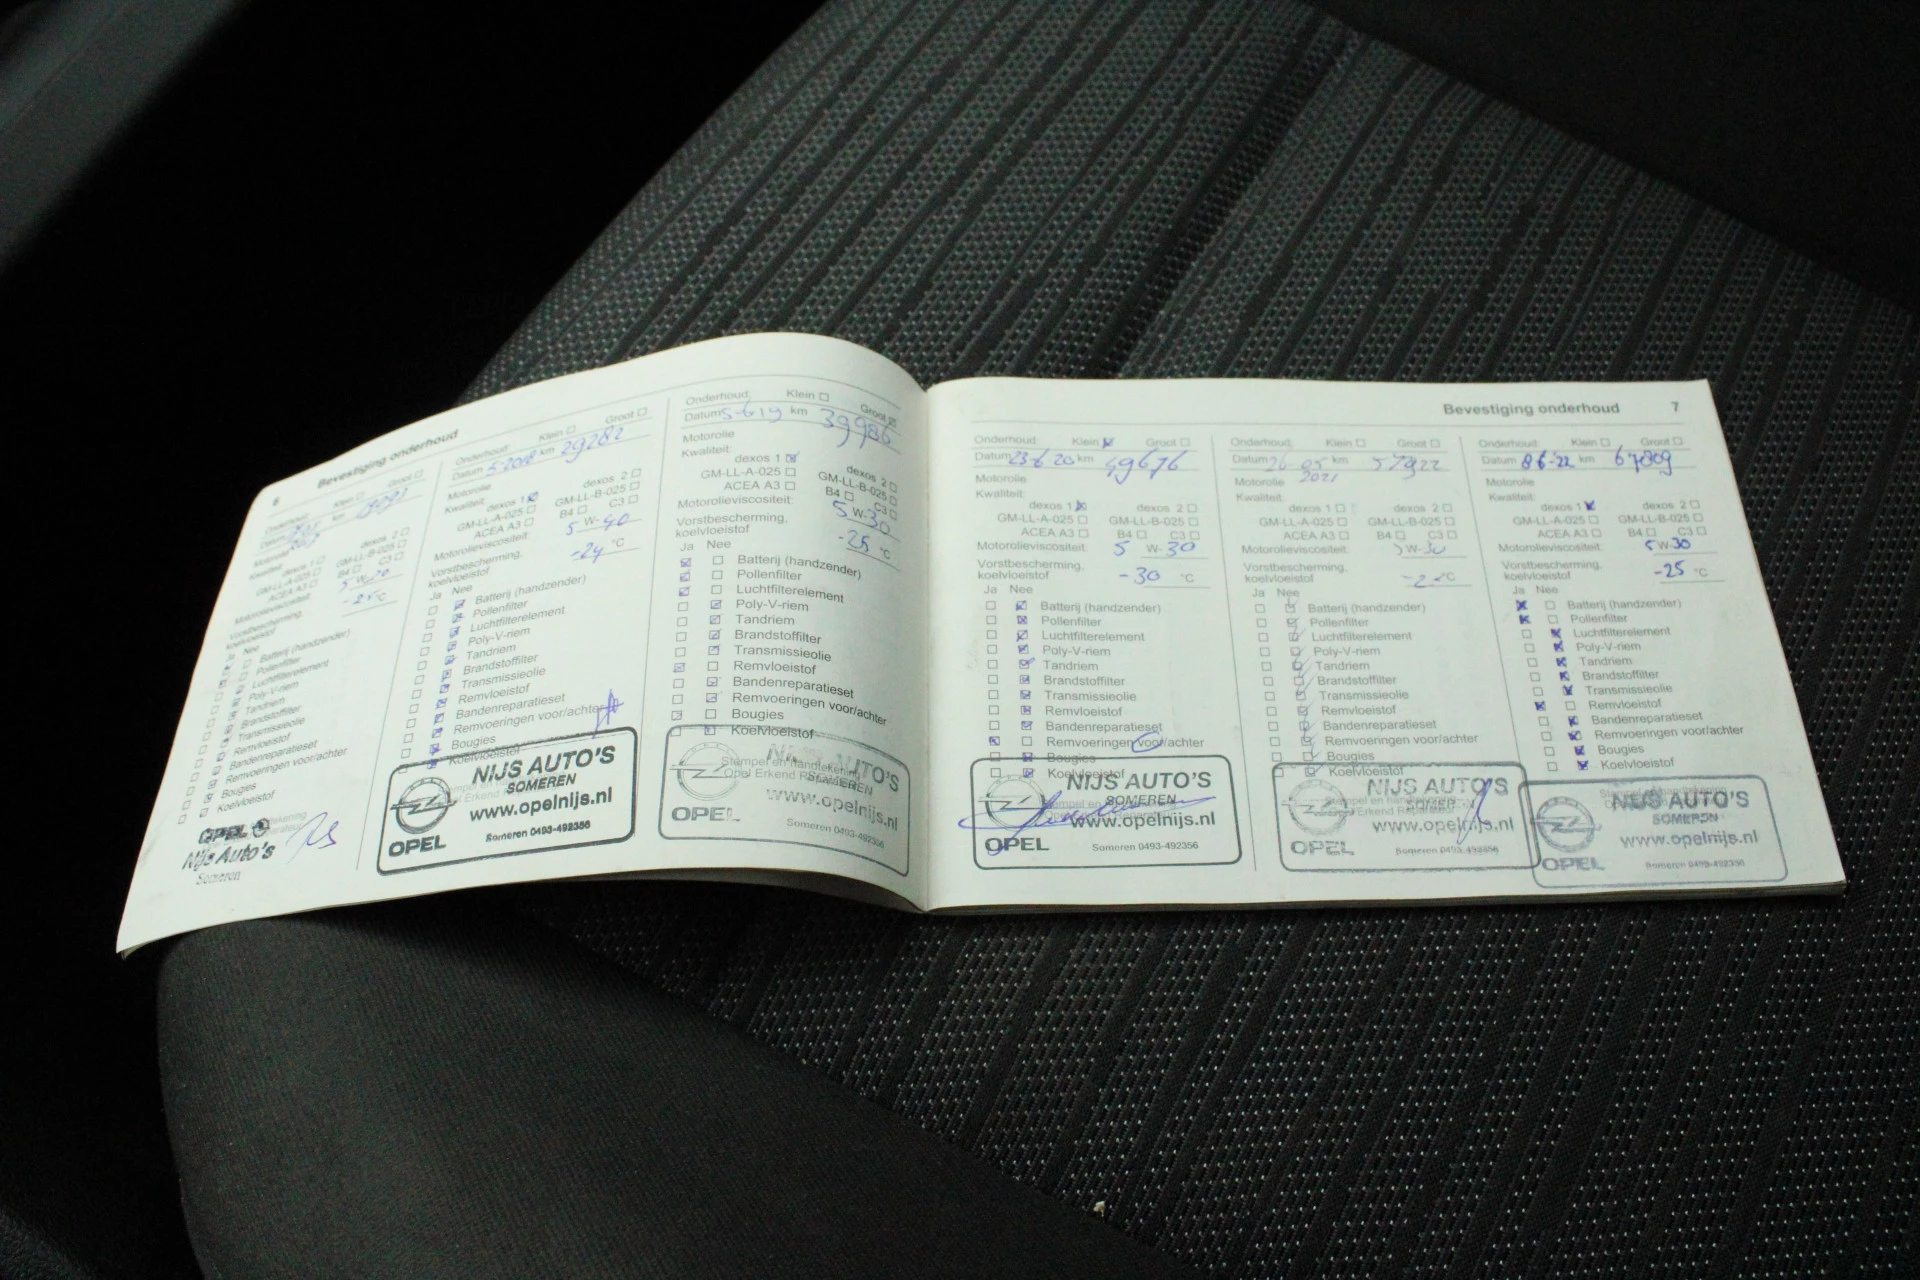 6 Bevestiging onderhoud
Onderhoud: Klein Groot
Datum km
Motorolie
Kwaliteit: dexos 1 dexos 2
GM-LL-A-025 GM-LL-B-025
ACEA A3 B4 C3
Motorolieviscositeit: 5 W-
Vorstbescherming,
koelvloeistof °C
Ja Nee
Batterij (handzender)
Pollenfilter
Luchtfilterelement
Poly-V-riem
Tandriem
Brandstoffilter
Transmissieolie
Remvloeistof
Bandenreparatieset
Remvoeringen voor/achter
Bougies
Koelvloeistof
OPEL
Nijs Auto's
Someren
Onderhoud: Klein Groot
Datum 5-2018 km 29282
Motorolie
Kwaliteit: dexos 1 dexos 2
GM-LL-A-025 GM-LL-B-025
ACEA A3 B4 C3
Motorolieviscositeit: 5 W-40
Vorstbescherming,
koelvloeistof -24 °C
Ja Nee
Batterij (handzender)
Pollenfilter
Luchtfilterelement
Poly-V-riem
Tandriem
Brandstoffilter
Transmissieolie
Remvloeistof
Bandenreparatieset
Remvoeringen voor/achter
Bougies
Koelvloeistof
NIJS AUTO'S
SOMEREN
www.opelnijs.nl
OPEL Someren 0493-492356
Onderhoud: Klein Groot
Datum 5-6 19 km 39986
Motorolie
Kwaliteit: dexos 1 dexos 2
GM-LL-A-025 GM-LL-B-025
ACEA A3 B4 C3
Motorolieviscositeit: 5 W-30
Vorstbescherming,
koelvloeistof -25 °C
Ja Nee
Batterij (handzender)
Pollenfilter
Luchtfilterelement
Poly-V-riem
Tandriem
Brandstoffilter
Transmissieolie
Remvloeistof
Bandenreparatieset
Remvoeringen voor/achter
Bougies
Koelvloeistof
Stempel en handtekening
Opel Erkend Reparateur
NIJS AUTO'S
SOMEREN
www.opelnijs.nl
OPEL Someren 0493-492356
Bevestiging onderhoud 7
Onderhoud: Klein Groot
Datum 23-6 20 km 49676
Motorolie
Kwaliteit:
dexos 1 dexos 2
GM-LL-A-025 GM-LL-B-025
ACEA A3 B4 C3
Motorolieviscositeit: 5 W-30
Vorstbescherming,
koelvloeistof -30 °C
Ja Nee
Batterij (handzender)
Pollenfilter
Luchtfilterelement
Poly-V-riem
Tandriem
Brandstoffilter
Transmissieolie
Remvloeistof
Bandenreparatieset
Remvoeringen voor/achter
Bougies
Koelvloeistof
NIJS AUTO'S
SOMEREN
www.opelnijs.nl
OPEL Someren 0493-492356
Onderhoud: Klein Groot
Datum 26-05 km 57922
Motorolie 2021
Kwaliteit:
dexos 1 dexos 2
GM-LL-A-025 GM-LL-B-025
ACEA A3 B4 C3
Motorolieviscositeit: 5 W-30
Vorstbescherming,
koelvloeistof °C
Ja Nee
Batterij (handzender)
Pollenfilter
Luchtfilterelement
Poly-V-riem
Tandriem
Brandstoffilter
Transmissieolie
Remvloeistof
Bandenreparatieset
Remvoeringen voor/achter
Bougies
Koelvloeistof
NIJS AUTO'S
www.opelnijs.nl
OPEL Someren 0493-492356
Onderhoud: Klein Groot
Datum 8 6-22 km 67809
Motorolie
Kwaliteit:
dexos 1 dexos 2
GM-LL-A-025 GM-LL-B-025
ACEA A3 B4 C3
Motorolieviscositeit: 5 W-30
Vorstbescherming,
koelvloeistof -25 °C
Ja Nee
Batterij (handzender)
Pollenfilter
Luchtfilterelement
Poly-V-riem
Tandriem
Brandstoffilter
Transmissieolie
Remvloeistof
Bandenreparatieset
Remvoeringen voor/achter
Bougies
Koelvloeistof
NIJS AUTO'S
SOMEREN
www.opelnijs.nl
OPEL Someren 0493-492356